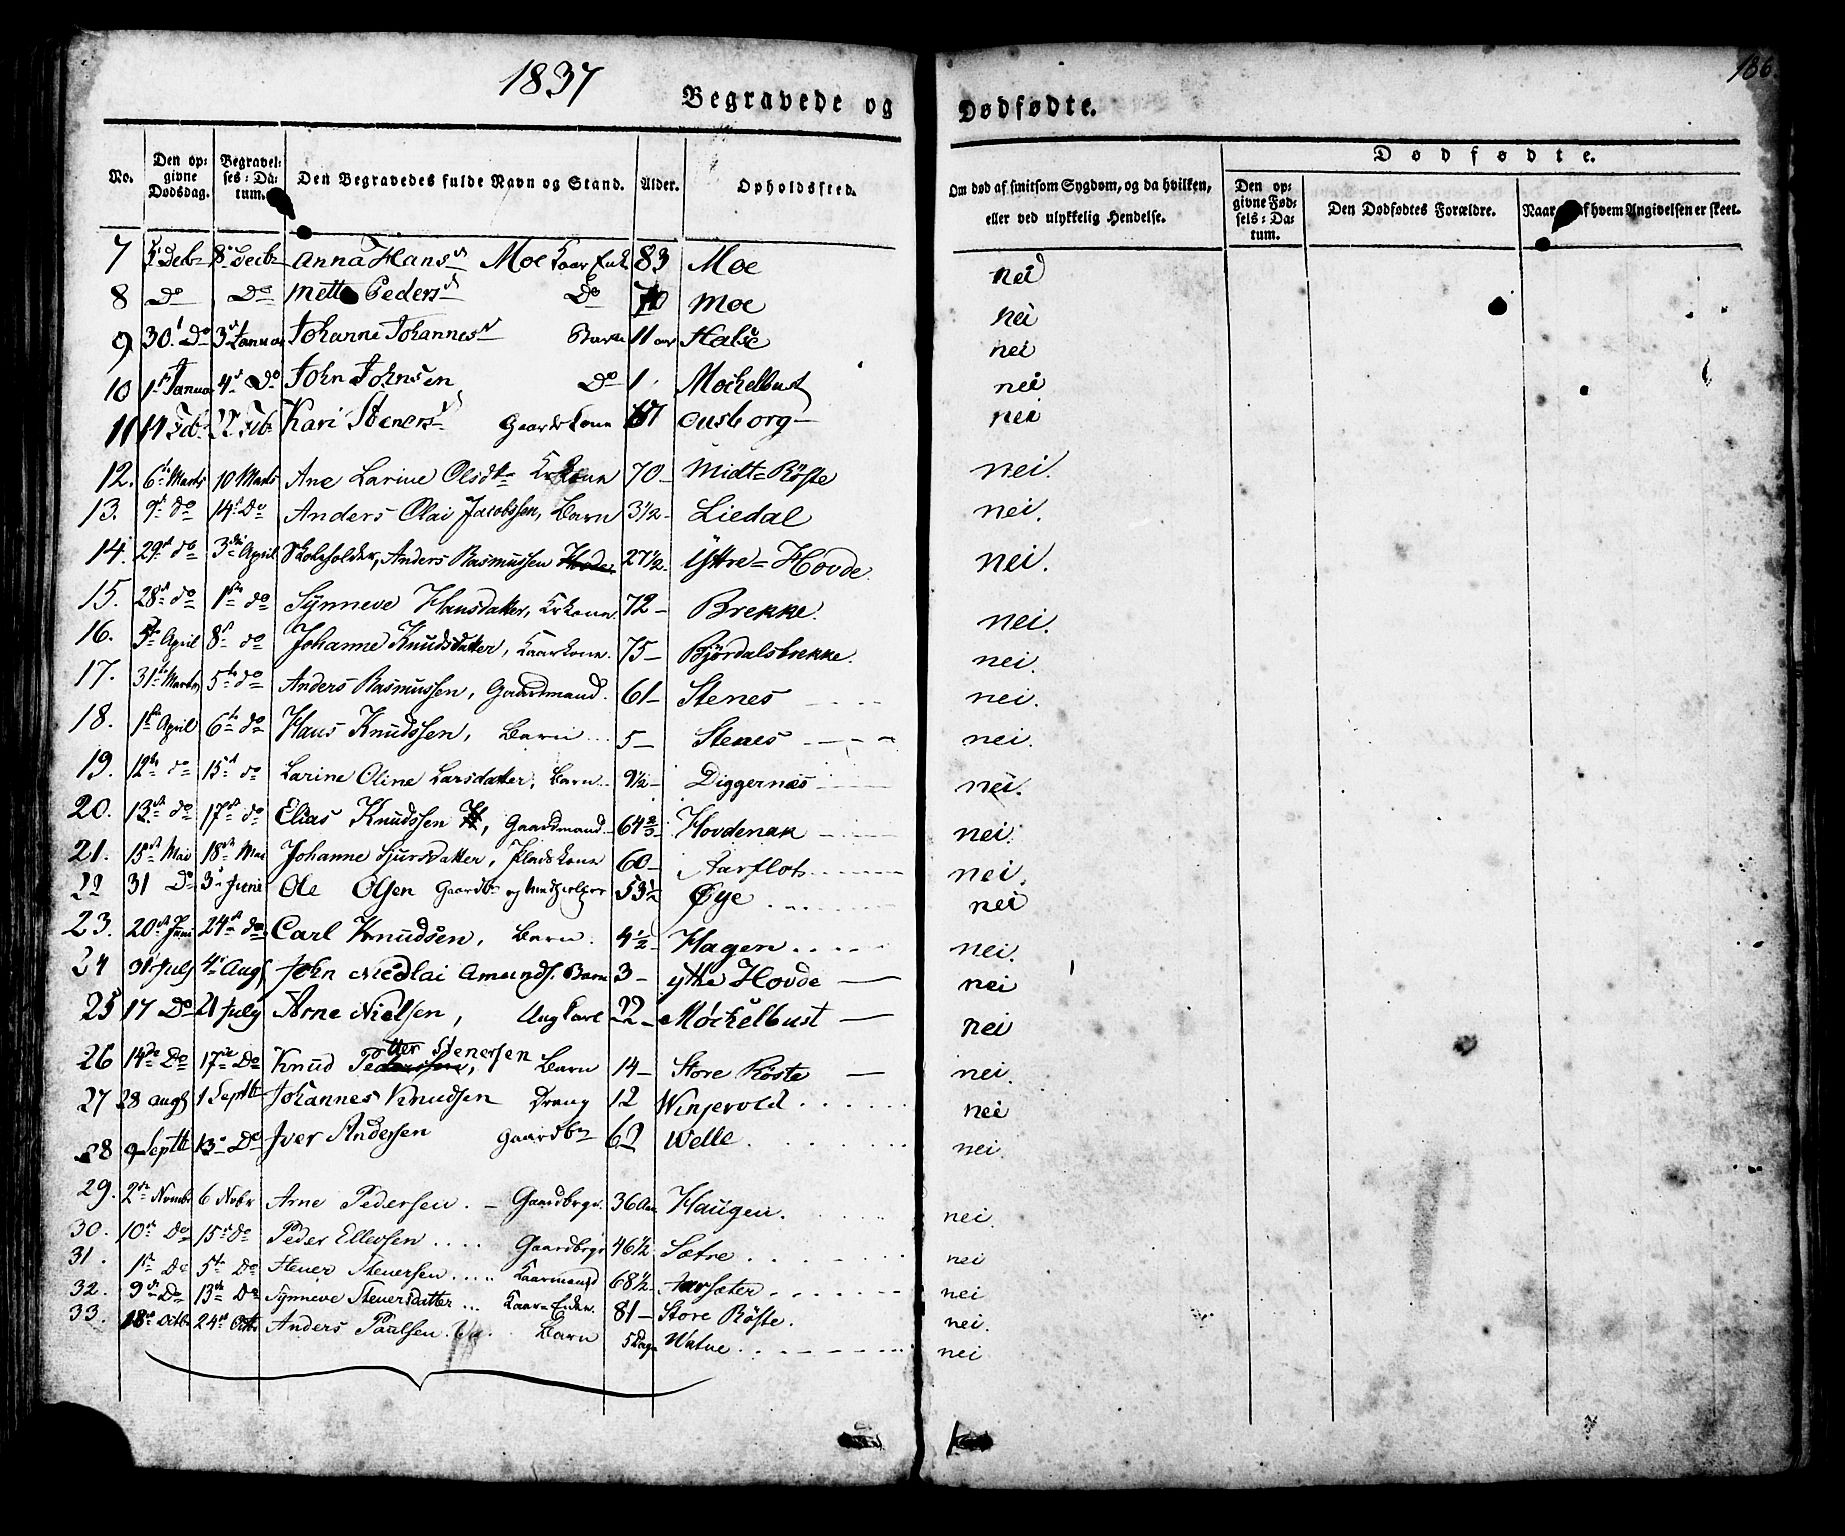 1837
186
Begravede og Dødfødte.
No. | Den opgivne Dødsdag. | Begravelses-Datum. | Den Begravedes fulde Navn og Stand. | Alder. | Opholdssted. | Om død af smitsom Sygdom, og da hvilken, eller ved ulykkelig Hendelse. | Dødfødte. | Den opgivne Fødsels-Datum. | Den Dødfødtes Forældre. | Naar af hvem Angivelsen er skeet.
7 | Decbr | 8 Decbr | Anna Hansd Moe Kaar Enk | 83 | Moe | nei
8 | Do | Do | Mette Pedersd Do | 70 | Moe | nei
9 | 30 Do | 3 Januar | Johanne Johannesd Barn | 11 aar | Halse | nei
10 | 1 Janua | 4 Do | John Johnsen Do | 1 | Mochelbust | nei
11 | 17 Feb | 22 Feb | Kari Stenersd Gaardkone | 67 | Ousborg | nei
12. | 6te Marts | 10 Marts | Ane Larine Olsdtr Krkone | 70 | Midt-Röste | nei.
13. | 9de do | 14de Do | Anders Olai Jacobssen, Barn | 3 1/2 | Liedal | nei.
14. | 29de do | 3die April | Skoleholder, Anders Rasmussen Hovde | 27 1/2 | Yttre-Hovde. | nei.
15. | 28de do | 1ste do | Synneve Hansdatter, Krkone | 72 | Brekke. | nei.
16. | April | 8de do | Johanne Knudsdatter, Kaarkone. | 75 | Bjørdalsbrekke. | nei.
17. | 31te Marts | 5te do | Anders Rasmussen, Gaardmand. | 61 | Stenes | nei.
18. | 1ste April | 6te do | Hans Knudssen, Barn | 5 | Stenes | nei.
19. | 12te do | 15de do | Larine Oline Larsdatter, Barn | 9 1/2 | Diggernæs | nei.
20. | 13de do | 17de do | Elias Knudssen, Gaardmand. | 64 2/3 | Hovdenak | nei.
21. | 15de Mai | 18de Mai | Johanne Sjursdatter, Pladskone | 60 | Aarflot | nei.
22 | 31 Do | 3 Juni | Ole Olsen Gaardbr og Medhielper | 53 1/2 | Øye | nei
23. | 20de Juni | 24de do | Carl Knudsen, Barn. | 4 1/2 | Hagen | nei.
24 | 31 July | 4 Aug | John Nicolai Amunds. Barn | 3 | ytre Hovde | nei
25 | 17 Do | 21 July | Arne Nielsen, Ung Karl | 22 | Møckelbust | nei
26 | 14de Do | 17de Do | Knud Petter Stenersen Barn | 14 | Store Röste | nei.
27 | 28 Augs | 1 Septbr | Johannes Knudsen Dreng | 12 | Winjevold | nei
28 | 9 Septbr | 13 Do | Iver Andersen Gaardbr | 62 | Welle | nei.
29. | 2den Novbr | 6 Nvbr | Arne Pedersen. Gaardbrgr. | 36 Aar | Haugen. | nei.
30. | 10de Do | 15de do | Peder Ellevsen Gaardbrgr | 46 1/2 | Sætre | nei
31. | 1ste Do | 5te Do | Stener Stenersen Kaarmand | 68 1/2 | Aarsæter | nei
32. | 9de Do | 13de Do | Synneve Stenersdatter Kaar-Enke. | 81 | Store Röste. | nei.
33. | 18de Octbr | 24de Octbr | Anders Paulsen Barn | 5 Dage | Watne | nei